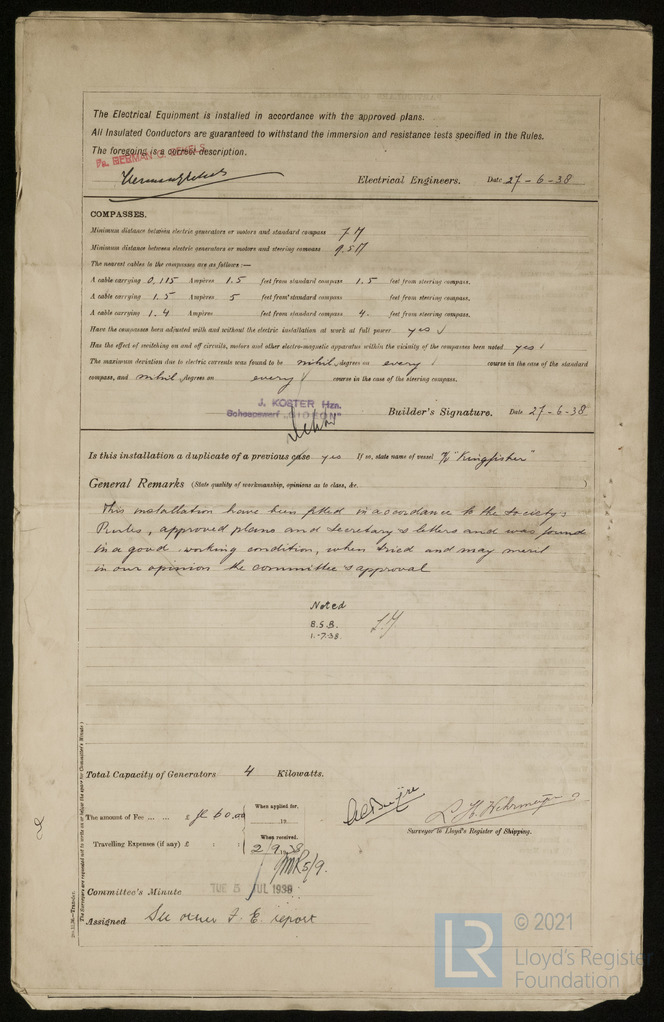 The Electrical Equipment is installed in accordance with the approved plans.
All Insulated Conductors are guaranteed to withstand the immersion and resistance tests specified in the Rules.
The foregoing is a correct description.
Electrical Engineers. Date 27-6-38
COMPASSES.
Minimum distance between electric generators or motors and standard compass 7 M
Minimum distance between electric generators or motors and steering compass
The nearest cables to the compasses are as follows:—
A cable carrying 0,115 Ampères 1.5 feet from standard compass 1.5 feet from steering compass.
A cable carrying 1.5 Ampères 5 feet from standard compass feet from steering compass.
A cable carrying 1.4 Ampères feet from standard compass 4. feet from steering compass.
Have the compasses been adjusted with and without the electric installation at work at full power yes
Has the effect of switching on and off circuits, motors and other electro-magnetic apparatus within the vicinity of the compasses been noted yes
The maximum deviation due to electric currents was found to be nihil degrees on every course in the case of the standard
compass, and nihil degrees on every course in the case of the steering compass.
J. KOSTER Hzn.
Builder's Signature. Date 27-6-38
Is this installation a duplicate of a previous case yes If so, state name of vessel "Kingfisher"
General Remarks (State quality of workmanship, opinions as to class, &c.
This installation have been fitted in accordance to the Society's
Rules, approved plans and Secretary's letters and was found
in a good working condition, when tried and may merit
in our opinion the committee's approval
Noted
B.S.B.
1.-7.38.
Total Capacity of Generators 4 Kilowatts.
The amount of Fee ... ... £ fl 60.00
When applied for,
19
Travelling Expenses (if any) £ : :
When received,
2/9 1938
5/9.
Surveyor to Lloyd's Register of Shipping.
Committee's Minute TUE 5 JUL 1938
Assigned See other F. E. report
© 2021
LR
Lloyd's Register
Foundation